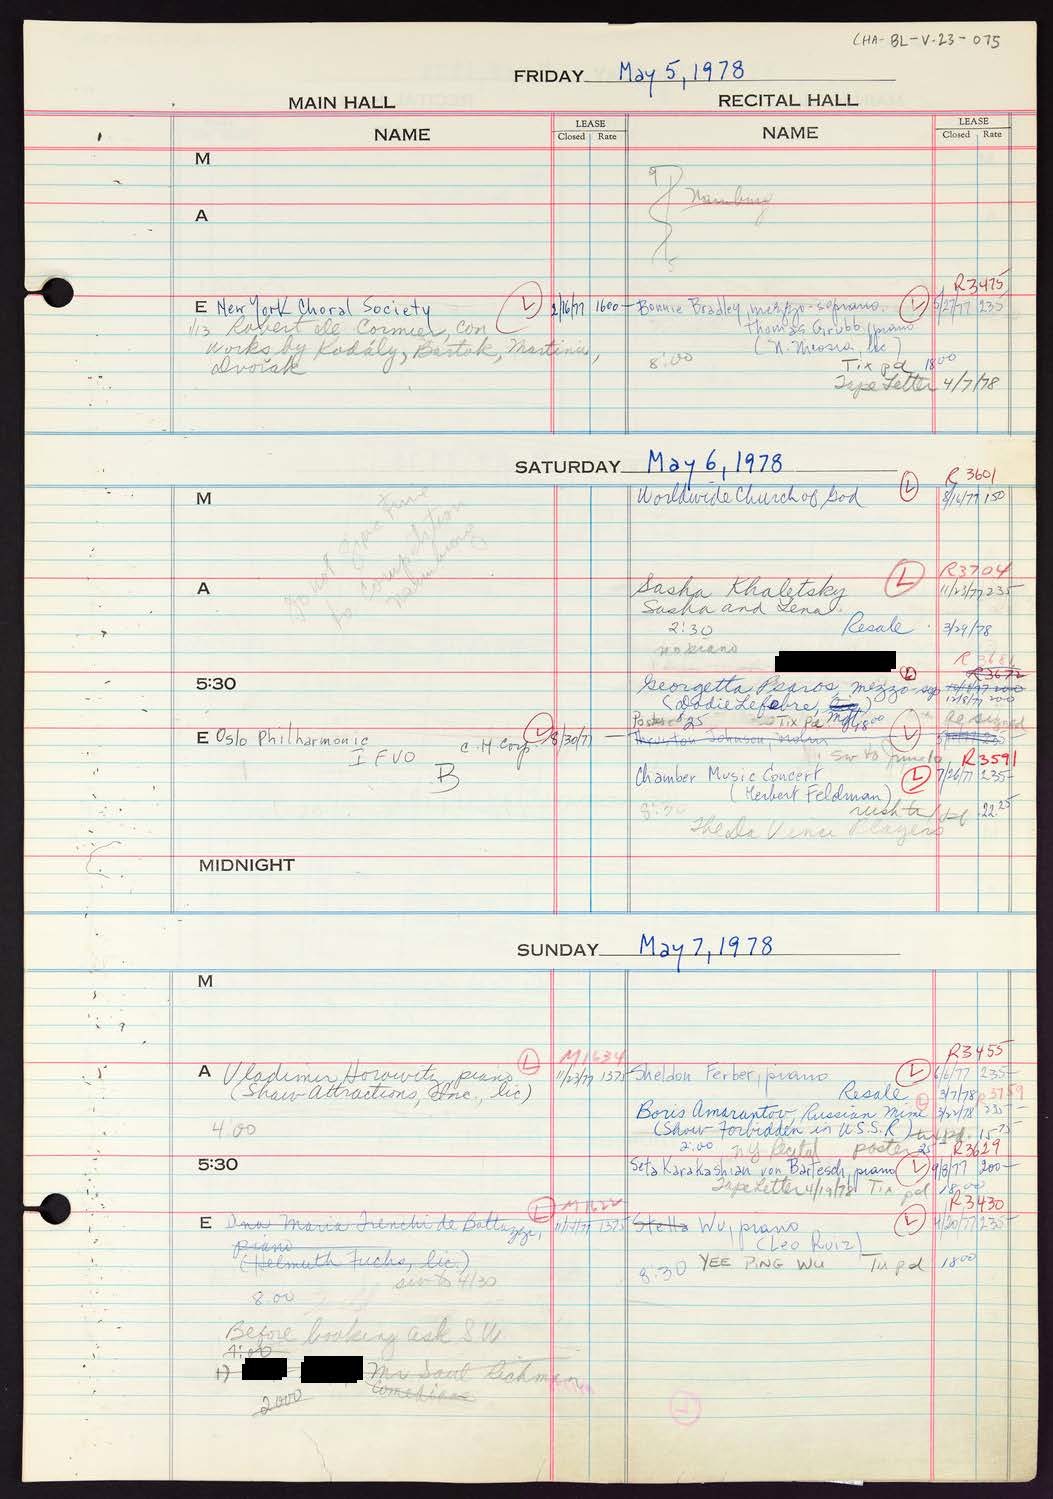 CHA-BL-V-23-075
FRIDAY May 5, 1978
MAIN HALL
RECITAL HALL
NAME
LEASE
Closed Rate
NAME
LEASE
Closed Rate
M
A
Naumburg
E New York Choral Society L 2/16/77 1600-
1/13 Robert De Cormier, con
works by Kodály, Bartok, Martinu,
Dvořák
R3475
Bonnie Bradley, mezzo-soprano. L 5/27/77 235
Thomas Grubb, piano
(N. Nicosia, lic)
8:00
Tix pd 1800
Tape Letter 4/7/78
SATURDAY May 6, 1978
M
Do not give time
to competition
Naumburg
R 3601
Worldwide Church of God L 8/16/77 150
A
R3704
Sasha Khaletsky L 11/23/77 235-
Sasha and Lena
2:30 Resale 3/29/78
no piano
5:30
R3672
Georgetta Psaros, mezzo-sop L
12/8/77 200
(Dodie Lefebre, mgr)
Poster $25 Tix Pd 18.00 as signed
E Oslo Philharmonic C.H. Corp L 8/30/77 —
I FVO
B
Thurston Johnson, violin L
sw to June 10
R3591
Chamber Music Concert L 7/26/77 235-
(Herbert Feldman)
8:30 rush tix pd 22.25
The Da Vinci Players
MIDNIGHT
SUNDAY May 7, 1978
M
A
M1634
Vladimir Horowitz, piano L 11/23/77 1375
(Shaw Attractions, Inc., lic)
4:00
R3455
Sheldon Ferber, piano L 6/6/77 235-
Resale 3/7/78 R3759
Boris Amarantov, Russian Mime L 3/22/78 235-
(Show Forbidden in U.S.S.R.) tix pd. 15.75
2:00 NY Recital poster 25
5:30
R3629
Seta Karakashian von Bartesch, piano L 9/8/77 200-
Tape Letter 4/19/78 Tix pd 18.00
E
M1622
Dna Maria Trenchi de Bottazzi, L 11/1/77 1375
piano
(Helmuth Fuchs, lic.)
sw to 4/30
8:00
R3430
Stella Wu, piano L 4/20/77 235-
(Leo Ruiz)
8:30 YEE PING WU Tix pd 18.00
Before booking ask S W
4:00
1) Mr Saul Richman
2000 Comedians
L